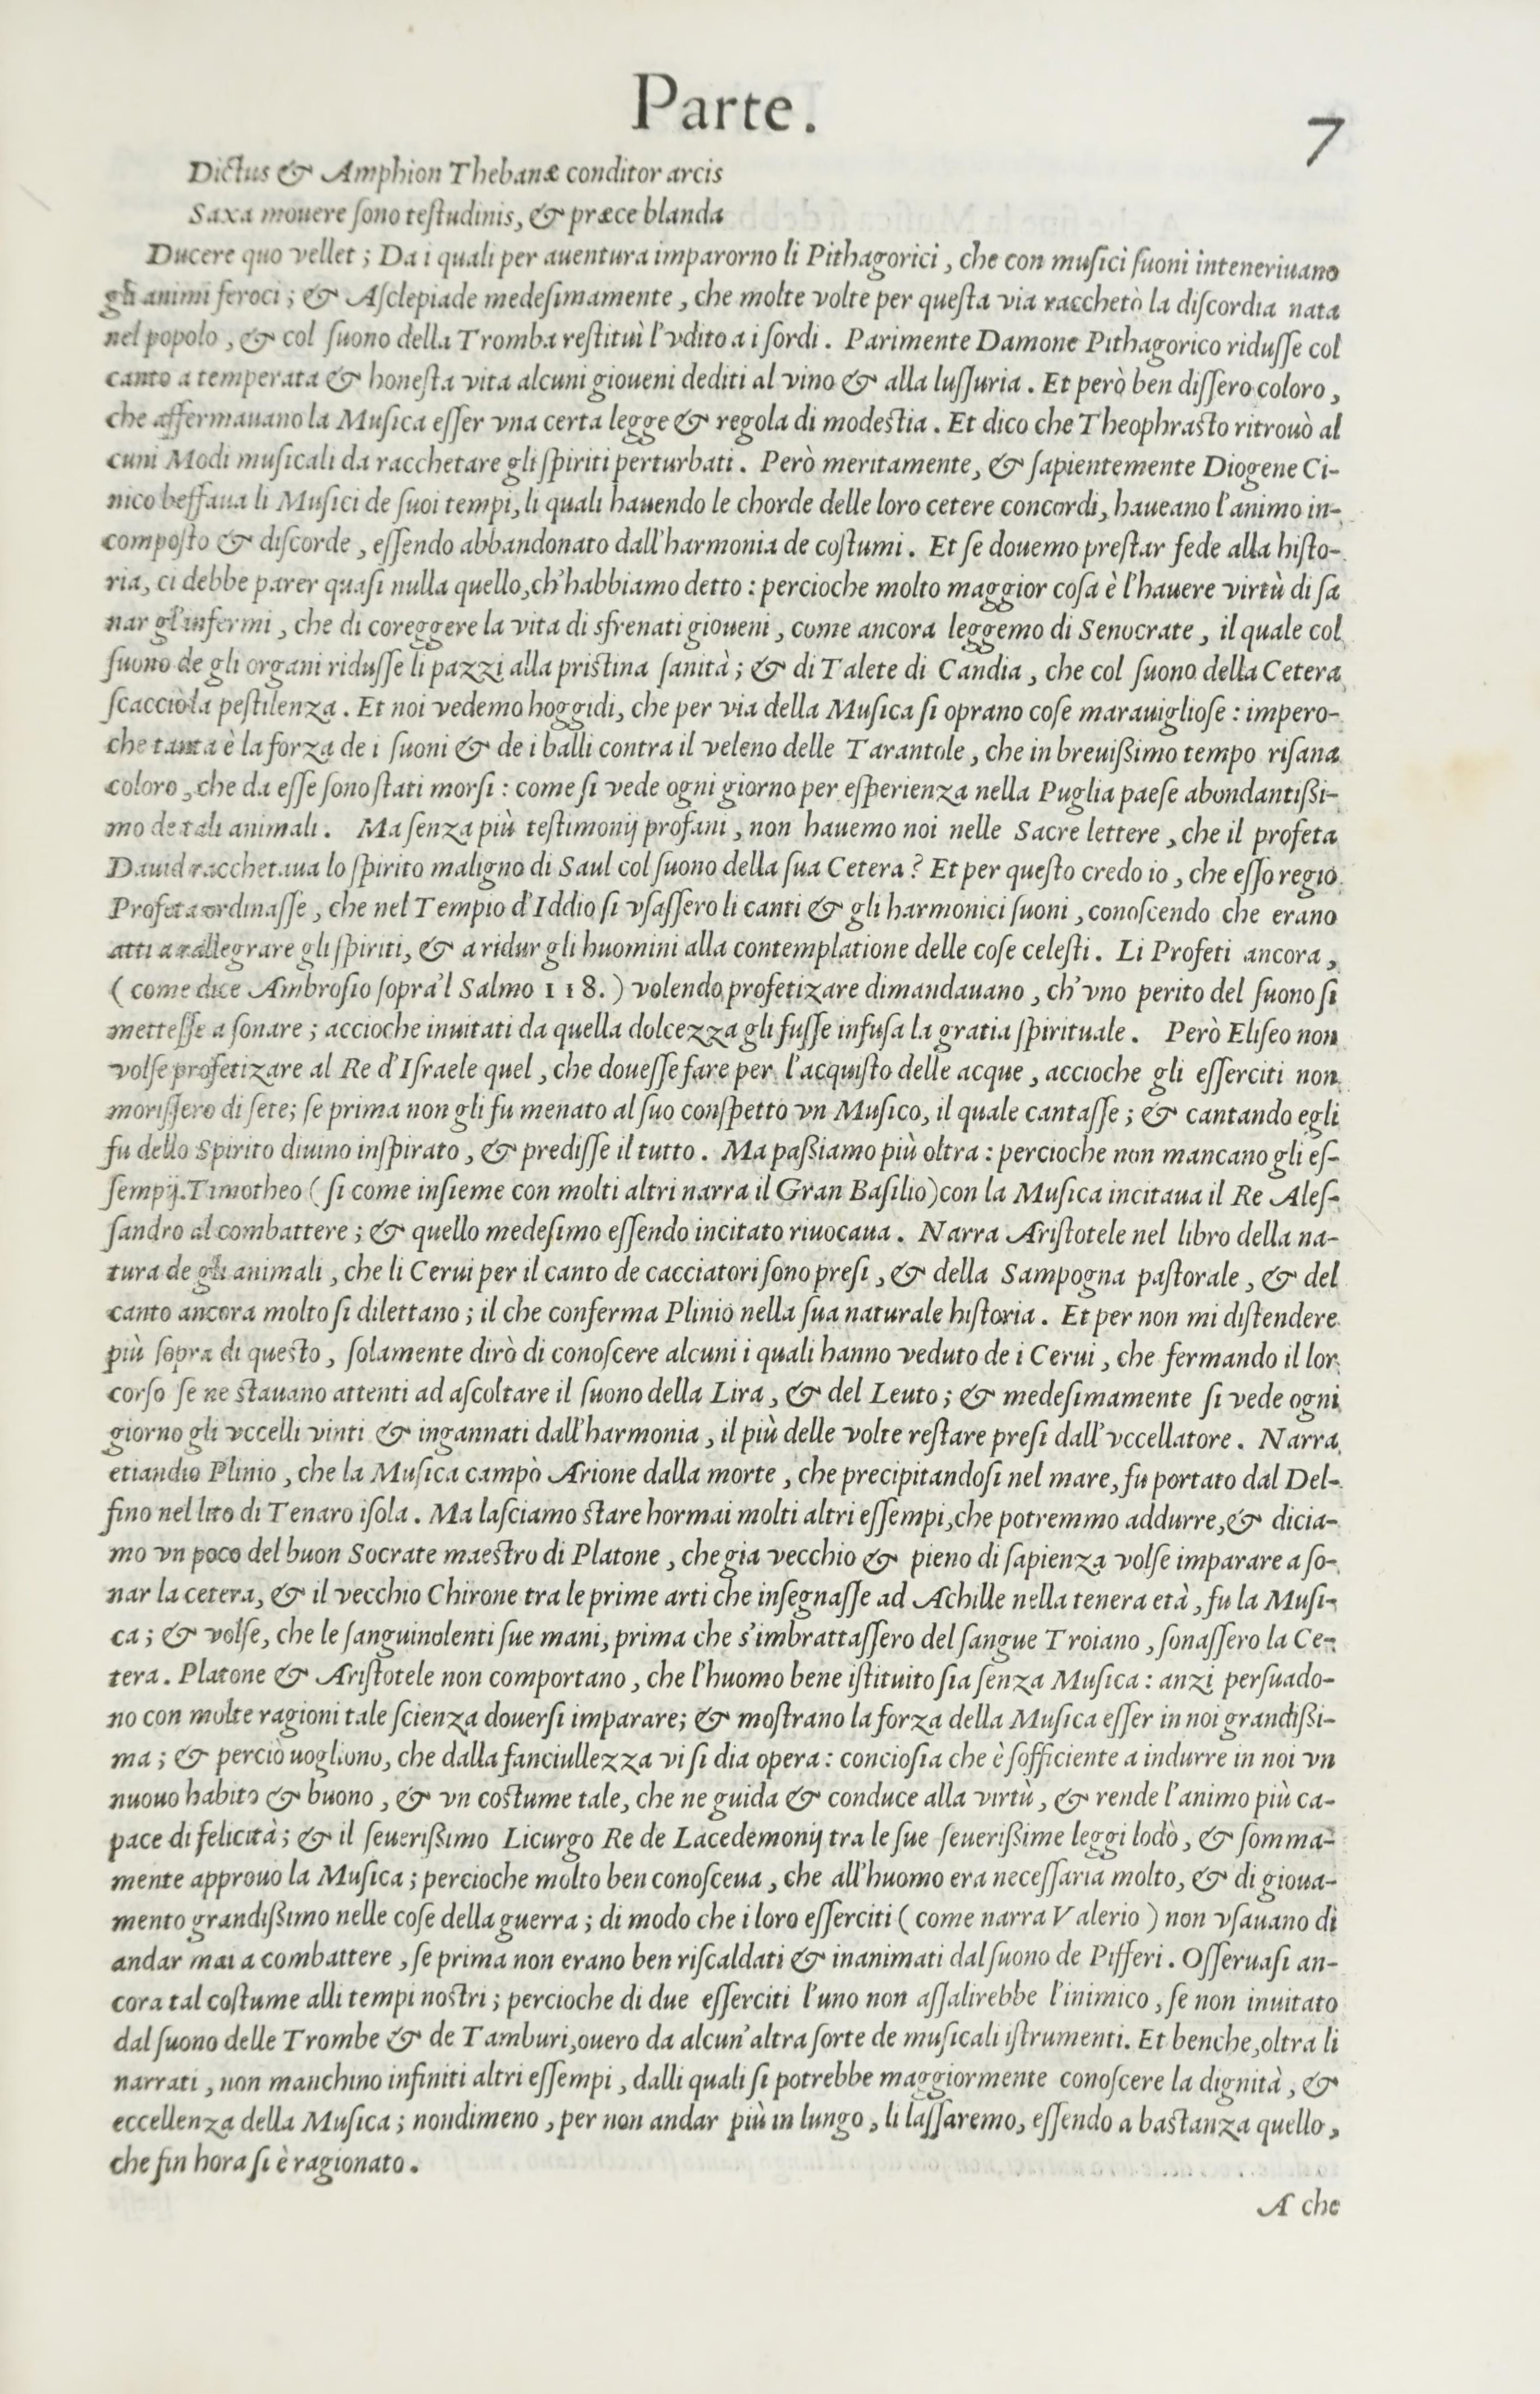 Parte.
7
Dictus & Amphion Thebanæ conditor arcis
Saxa mouere ſono teſtudinis, & præce blanda
Ducere quo vellet; Da i quali per auentura imparorno li Pithagorici, che con muſici ſuoni inteneriuano
gli animi feroci; & Aſclepiade medeſimamente, che molte volte per queſta via racchetò la diſcordia nata
nel popolo, & col ſuono della Tromba reſtituì l'vdito a i ſordi. Parimente Damone Pithagorico riduſſe col
canto a temperata & honeſta vita alcuni gioueni dediti al vino & alla luſſuria. Et però ben diſſero coloro,
che affermauano la Muſica eſſer vna certa legge & regola di modeſtia. Et dico che Theophraſto ritrouò al
cuni Modi muſicali da racchetare gli ſpiriti perturbati. Però meritamente, & ſapientemente Diogene Ci-
nico beffaua li Muſici de ſuoi tempi, li quali hauendo le chorde delle loro cetere concordi, haueano l'animo in-
compoſto & diſcorde, eſſendo abbandonato dall'harmonia de coſtumi. Et ſe douemo preſtar fede alla hiſto-
ria, ci debbe parer quaſi nulla quello, ch'habbiamo detto: percioche molto maggior coſa è l'hauere virtù di ſa
nar gl'infermi, che di coreggere la vita di sfrenati gioueni, come ancora leggemo di Senocrate, il quale col
ſuono de gli organi riduſſe li pazzi alla priſtina ſanità; & di Talete di Candia, che col ſuono della Cetera
ſcacciò la peſtilenza. Et noi vedemo hoggidi, che per via della Muſica ſi oprano coſe marauiglioſe: impero-
che tanta è la forza de i ſuoni & de i balli contra il veleno delle Tarantole, che in breuißimo tempo riſana
coloro, che da eſſe ſono ſtati morſi: come ſi vede ogni giorno per eſperienza nella Puglia paeſe abondantißi-
mo de tali animali. Ma ſenza più teſtimonij profani, non hauemo noi nelle Sacre lettere, che il profeta
Dauid racchetaua lo ſpirito maligno di Saul col ſuono della ſua Cetera? Et per queſto credo io, che eſſo regio
Profeta ordinaſſe, che nel Tempio d'Iddio ſi vſaſſero li canti & gli harmonici ſuoni, conoſcendo che erano
atti a rallegrare gli ſpiriti, & a ridur gli huomini alla contemplatione delle coſe celeſti. Li Profeti ancora,
(come dice Ambroſio ſopra'l Salmo 118.) volendo profetizare dimandauano, ch'vno perito del ſuono ſi
metteſſe a ſonare; accioche inuitati da quella dolcezza gli fuſſe infuſa la gratia ſpirituale. Però Eliſeo non
volſe profetizare al Re d'Iſraele quel, che doueſſe fare per l'acquiſto delle acque, accioche gli eſſerciti non
moriſſero di ſete; ſe prima non gli fu menato al ſuo conſpetto vn Muſico, il quale cantaſſe; & cantando egli
fu dello Spirito diuino inſpirato, & prediſſe il tutto. Ma paßiamo più oltra: percioche non mancano gli eſ-
ſempij. Timotheo (ſi come inſieme con molti altri narra il Gran Baſilio) con la Muſica incitaua il Re Aleſ-
ſandro al combattere; & quello medeſimo eſſendo incitato riuocaua. Narra Ariſtotele nel libro della na-
tura de gli animali, che li Cerui per il canto de cacciatori ſono preſi, & della Sampogna paſtorale, & del
canto ancora molto ſi dilettano; il che conferma Plinio nella ſua naturale hiſtoria. Et per non mi diſtendere
più ſopra di queſto, ſolamente dirò di conoſcere alcuni i quali hanno veduto de i Cerui, che fermando il lor
corſo ſe ne ſtauano attenti ad aſcoltare il ſuono della Lira, & del Leuto; & medeſimamente ſi vede ogni
giorno gli vccelli vinti & ingannati dall'harmonia, il più delle volte reſtare preſi dall'vccellatore. Narra
etiandio Plinio, che la Muſica campò Arione dalla morte, che precipitandoſi nel mare, fu portato dal Del-
fino nel lito di Tenaro iſola. Ma laſciamo ſtare hormai molti altri eſſempi, che potremmo addurre, & dicia-
mo vn poco del buon Socrate maeſtro di Platone, che gia vecchio & pieno di ſapienza volſe imparare a ſo-
nar la cetera, & il vecchio Chirone tra le prime arti che inſegnaſſe ad Achille nella tenera età, fu la Muſi-
ca; & volſe, che le ſanguinolenti ſue mani, prima che s'imbrattaſſero del ſangue Troiano, ſonaſſero la Ce-
tera. Platone & Ariſtotele non comportano, che l'huomo bene iſtituito ſia ſenza Muſica: anzi perſuado-
no con molte ragioni tale ſcienza douerſi imparare; & moſtrano la forza della Muſica eſſer in noi grandißi-
ma; & perciò uogliono, che dalla fanciullezza vi ſi dia opera: concioſia che è ſofficiente a indurre in noi vn
nuouo habito & buono, & vn coſtume tale, che ne guida & conduce alla virtù, & rende l'animo più ca-
pace di felicità; & il ſeuerißimo Licurgo Re de Lacedemonij tra le ſue ſeuerißime leggi lodò, & ſomma-
mente approuo la Muſica; percioche molto ben conoſceua, che all'huomo era neceſſaria molto, & di gioua-
mento grandißimo nelle coſe della guerra; di modo che i loro eſſerciti (come narra Valerio) non vſauano di
andar mai a combattere, ſe prima non erano ben riſcaldati & inanimati dal ſuono de Pifferi. Oſſeruaſi an-
cora tal coſtume alli tempi noſtri; percioche di due eſſerciti l'uno non aſſalirebbe l'inimico, ſe non inuitato
dal ſuono delle Trombe & de Tamburi, ouero da alcun'altra ſorte de muſicali iſtrumenti. Et benche, oltra li
narrati, non manchino infiniti altri eſſempi, dalli quali ſi potrebbe maggiormente conoſcere la dignità, &
eccellenza della Muſica; nondimeno, per non andar più in lungo, li laſſaremo, eſſendo a baſtanza quello,
che fin hora ſi è ragionato.
A che